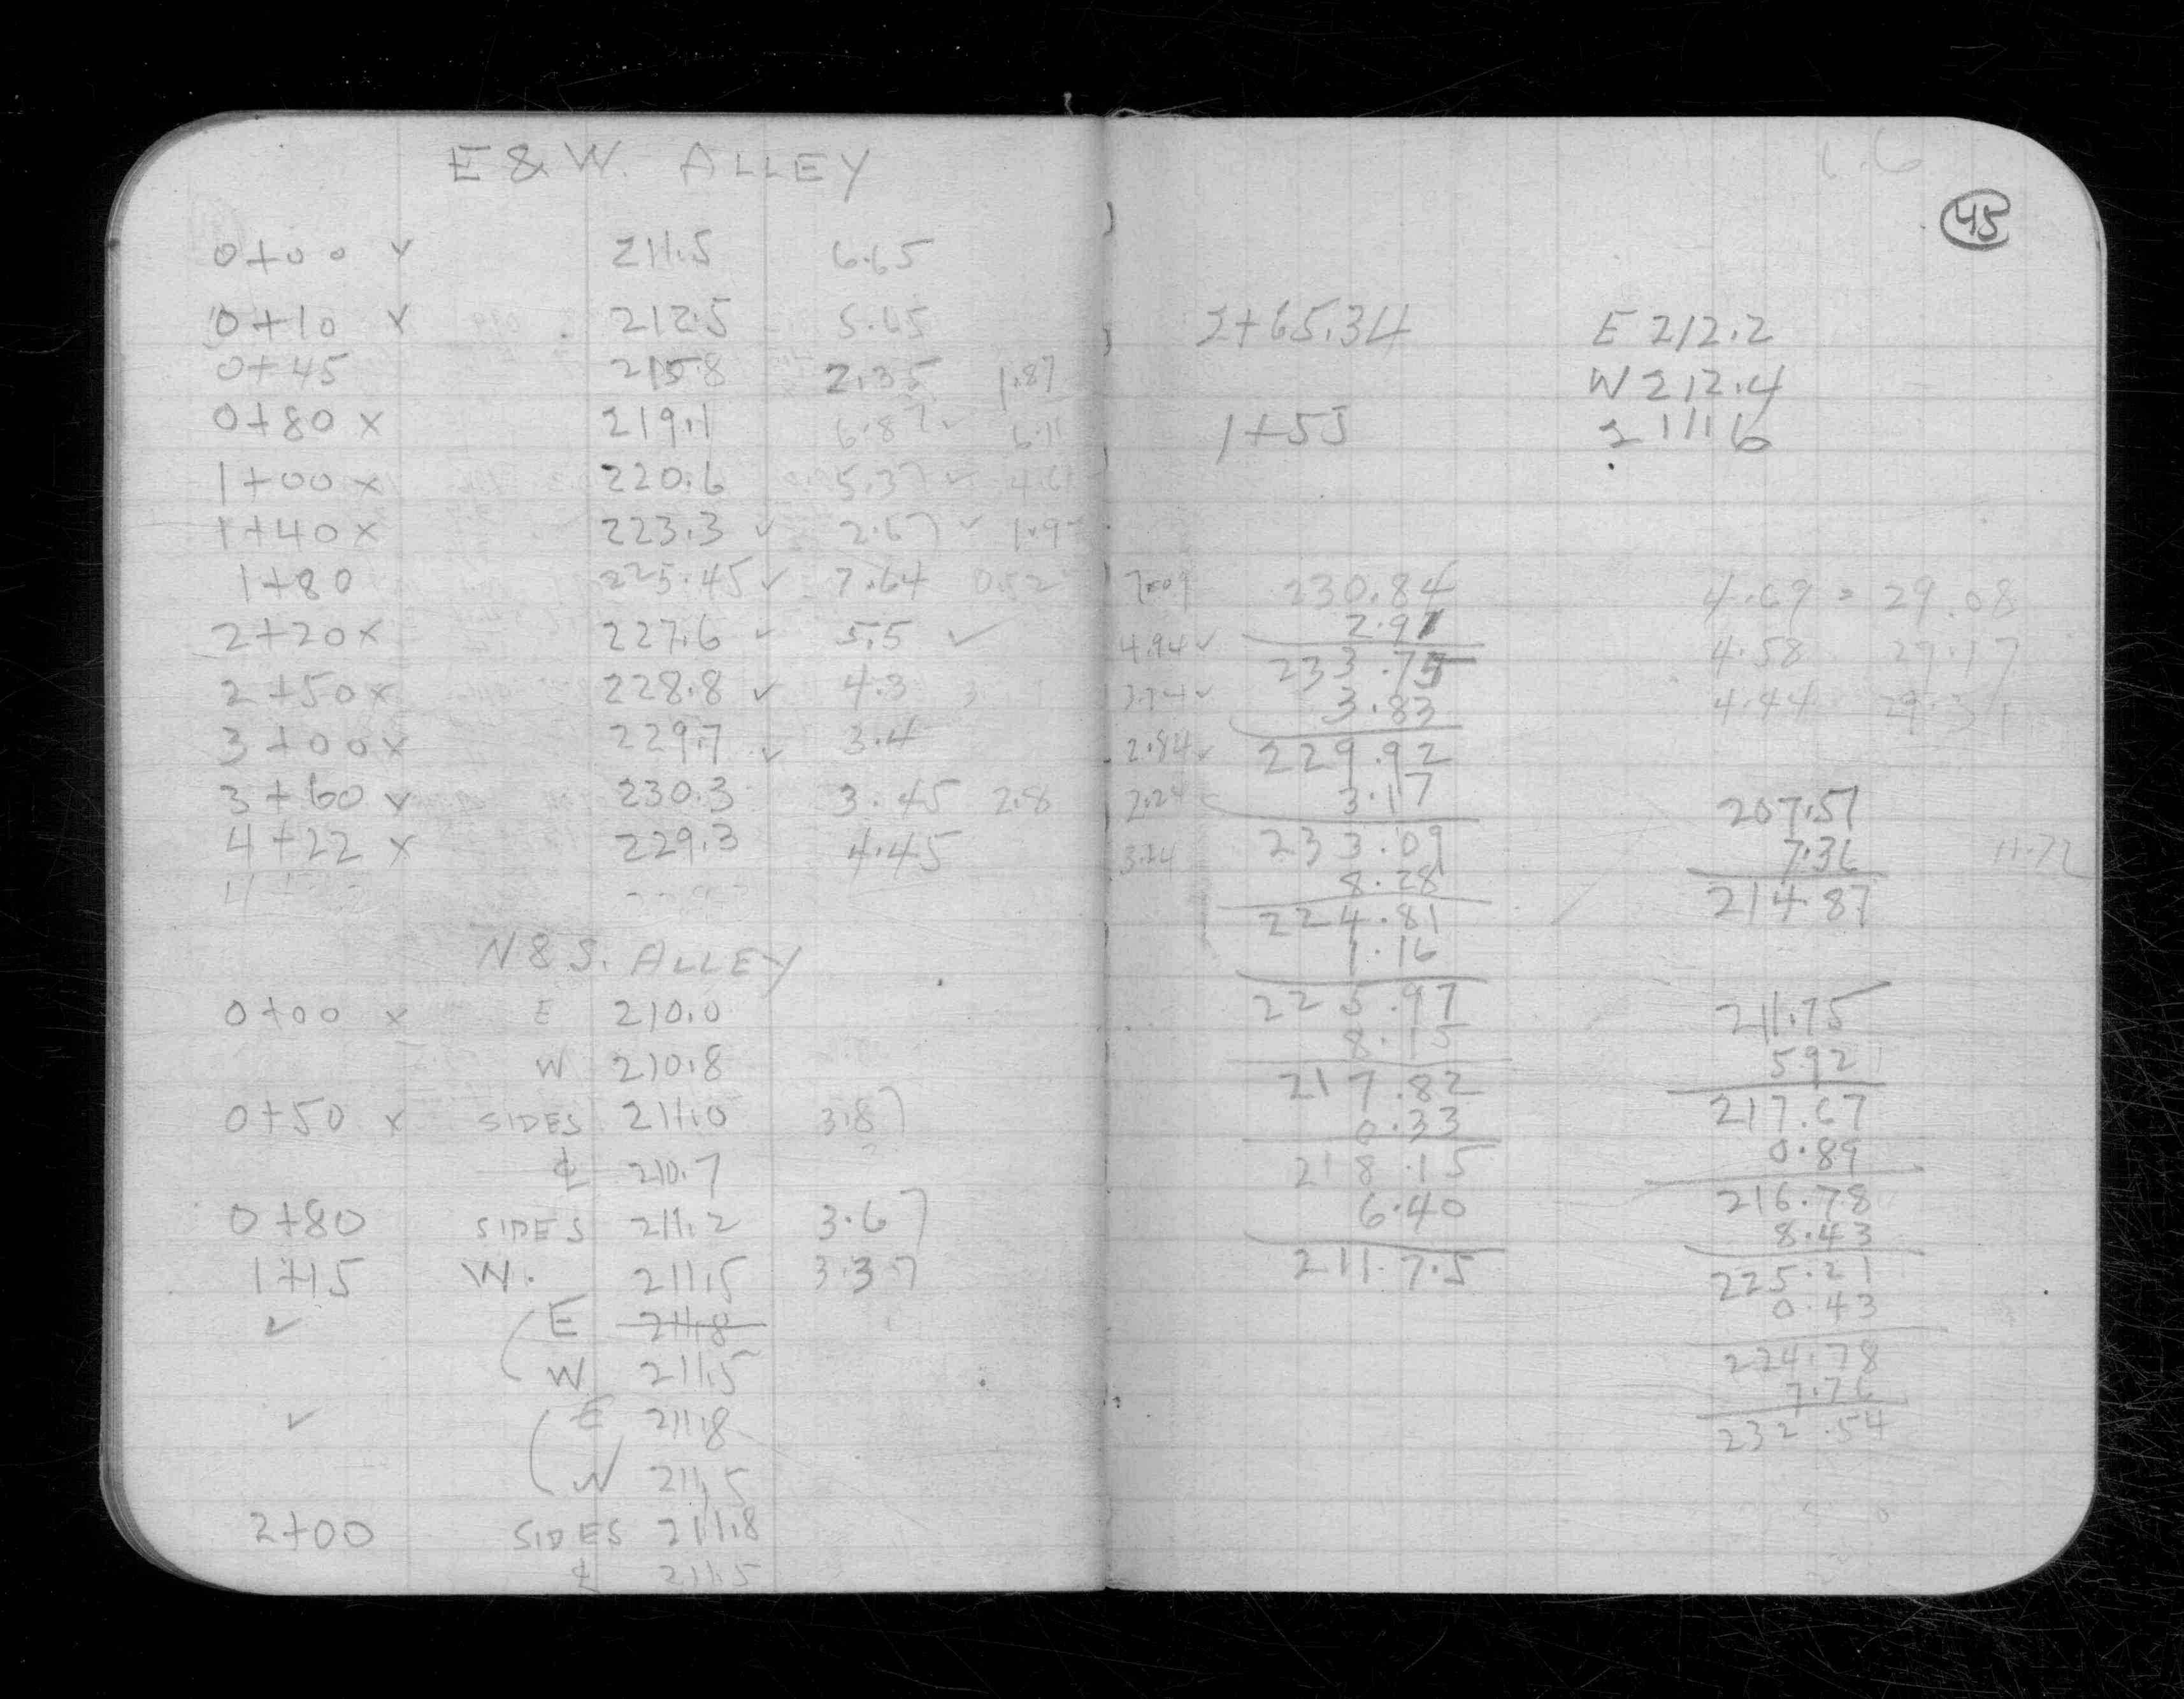 E & W. ALLEY
0+00 ✓ 211.5 6.65
0+10 ✓ 212.5 5.65
0+45 215.8 2.35 1.87
0+80 x 219.1 6.87 ✓ 6.11
1+00 x 220.6 5.37 ✓ 4.61
1+40 x 223.3 ✓ 2.67 ✓ 1.9
1+80 225.45 ✓ 7.64 0.52
2+20 x 227.6 ✓ 5.5 ✓
2+50 x 228.8 ✓ 4.3
3+00 x 229.7 ✓ 3.4
3+60 ✓ 230.3 3.45 2.8
4+22 x 229.3 4.45
N & S. ALLEY
0+00 x E 210.0
W 210.8
0+50 x SIDES 211.0 3.87
℄ 210.7
0+80 SIDES 211.2 3.67
1+15 W. 211.5 3.37
✓ E 211.8
W 211.5
✓ E 211.8
W 211.5
2+00 SIDES 211.8
℄ 211.5
1.6
45
2+65.34 E 212.2
W 212.4
1+55 211.6
7.09 230.84 4.69 = 29.08
4.94 ✓ 2.91 4.58 29.17
233.75 4.44 29.31
3.74 ✓ 3.83
2.84 ✓ 229.92
2.24 3.17
3.24 233.09
8.28
224.81
1.16
225.97
8.15
217.82
0.33
218.15
6.40
211.75
207.51
7.36 11.72
214.87
211.75
5.92
217.67
0.89
216.78
8.43
225.21
0.43
224.78
7.76
232.54